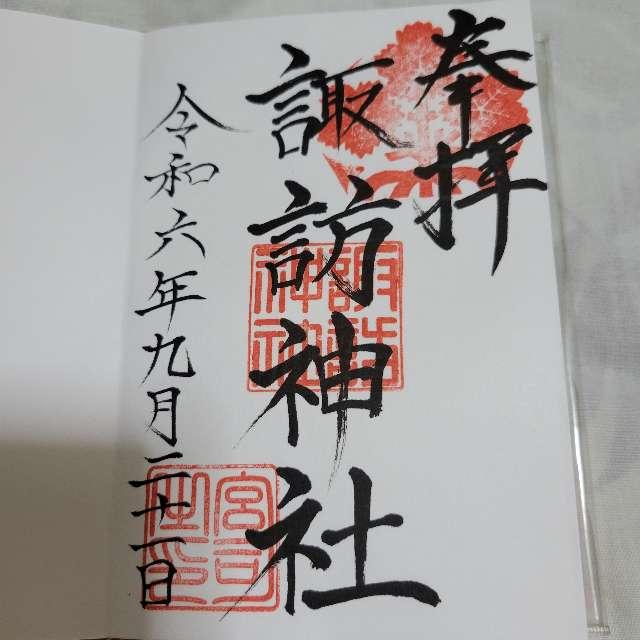 奉拝
諏訪神社
令和六年九月二十二日
諏訪
神社
宮司
之印